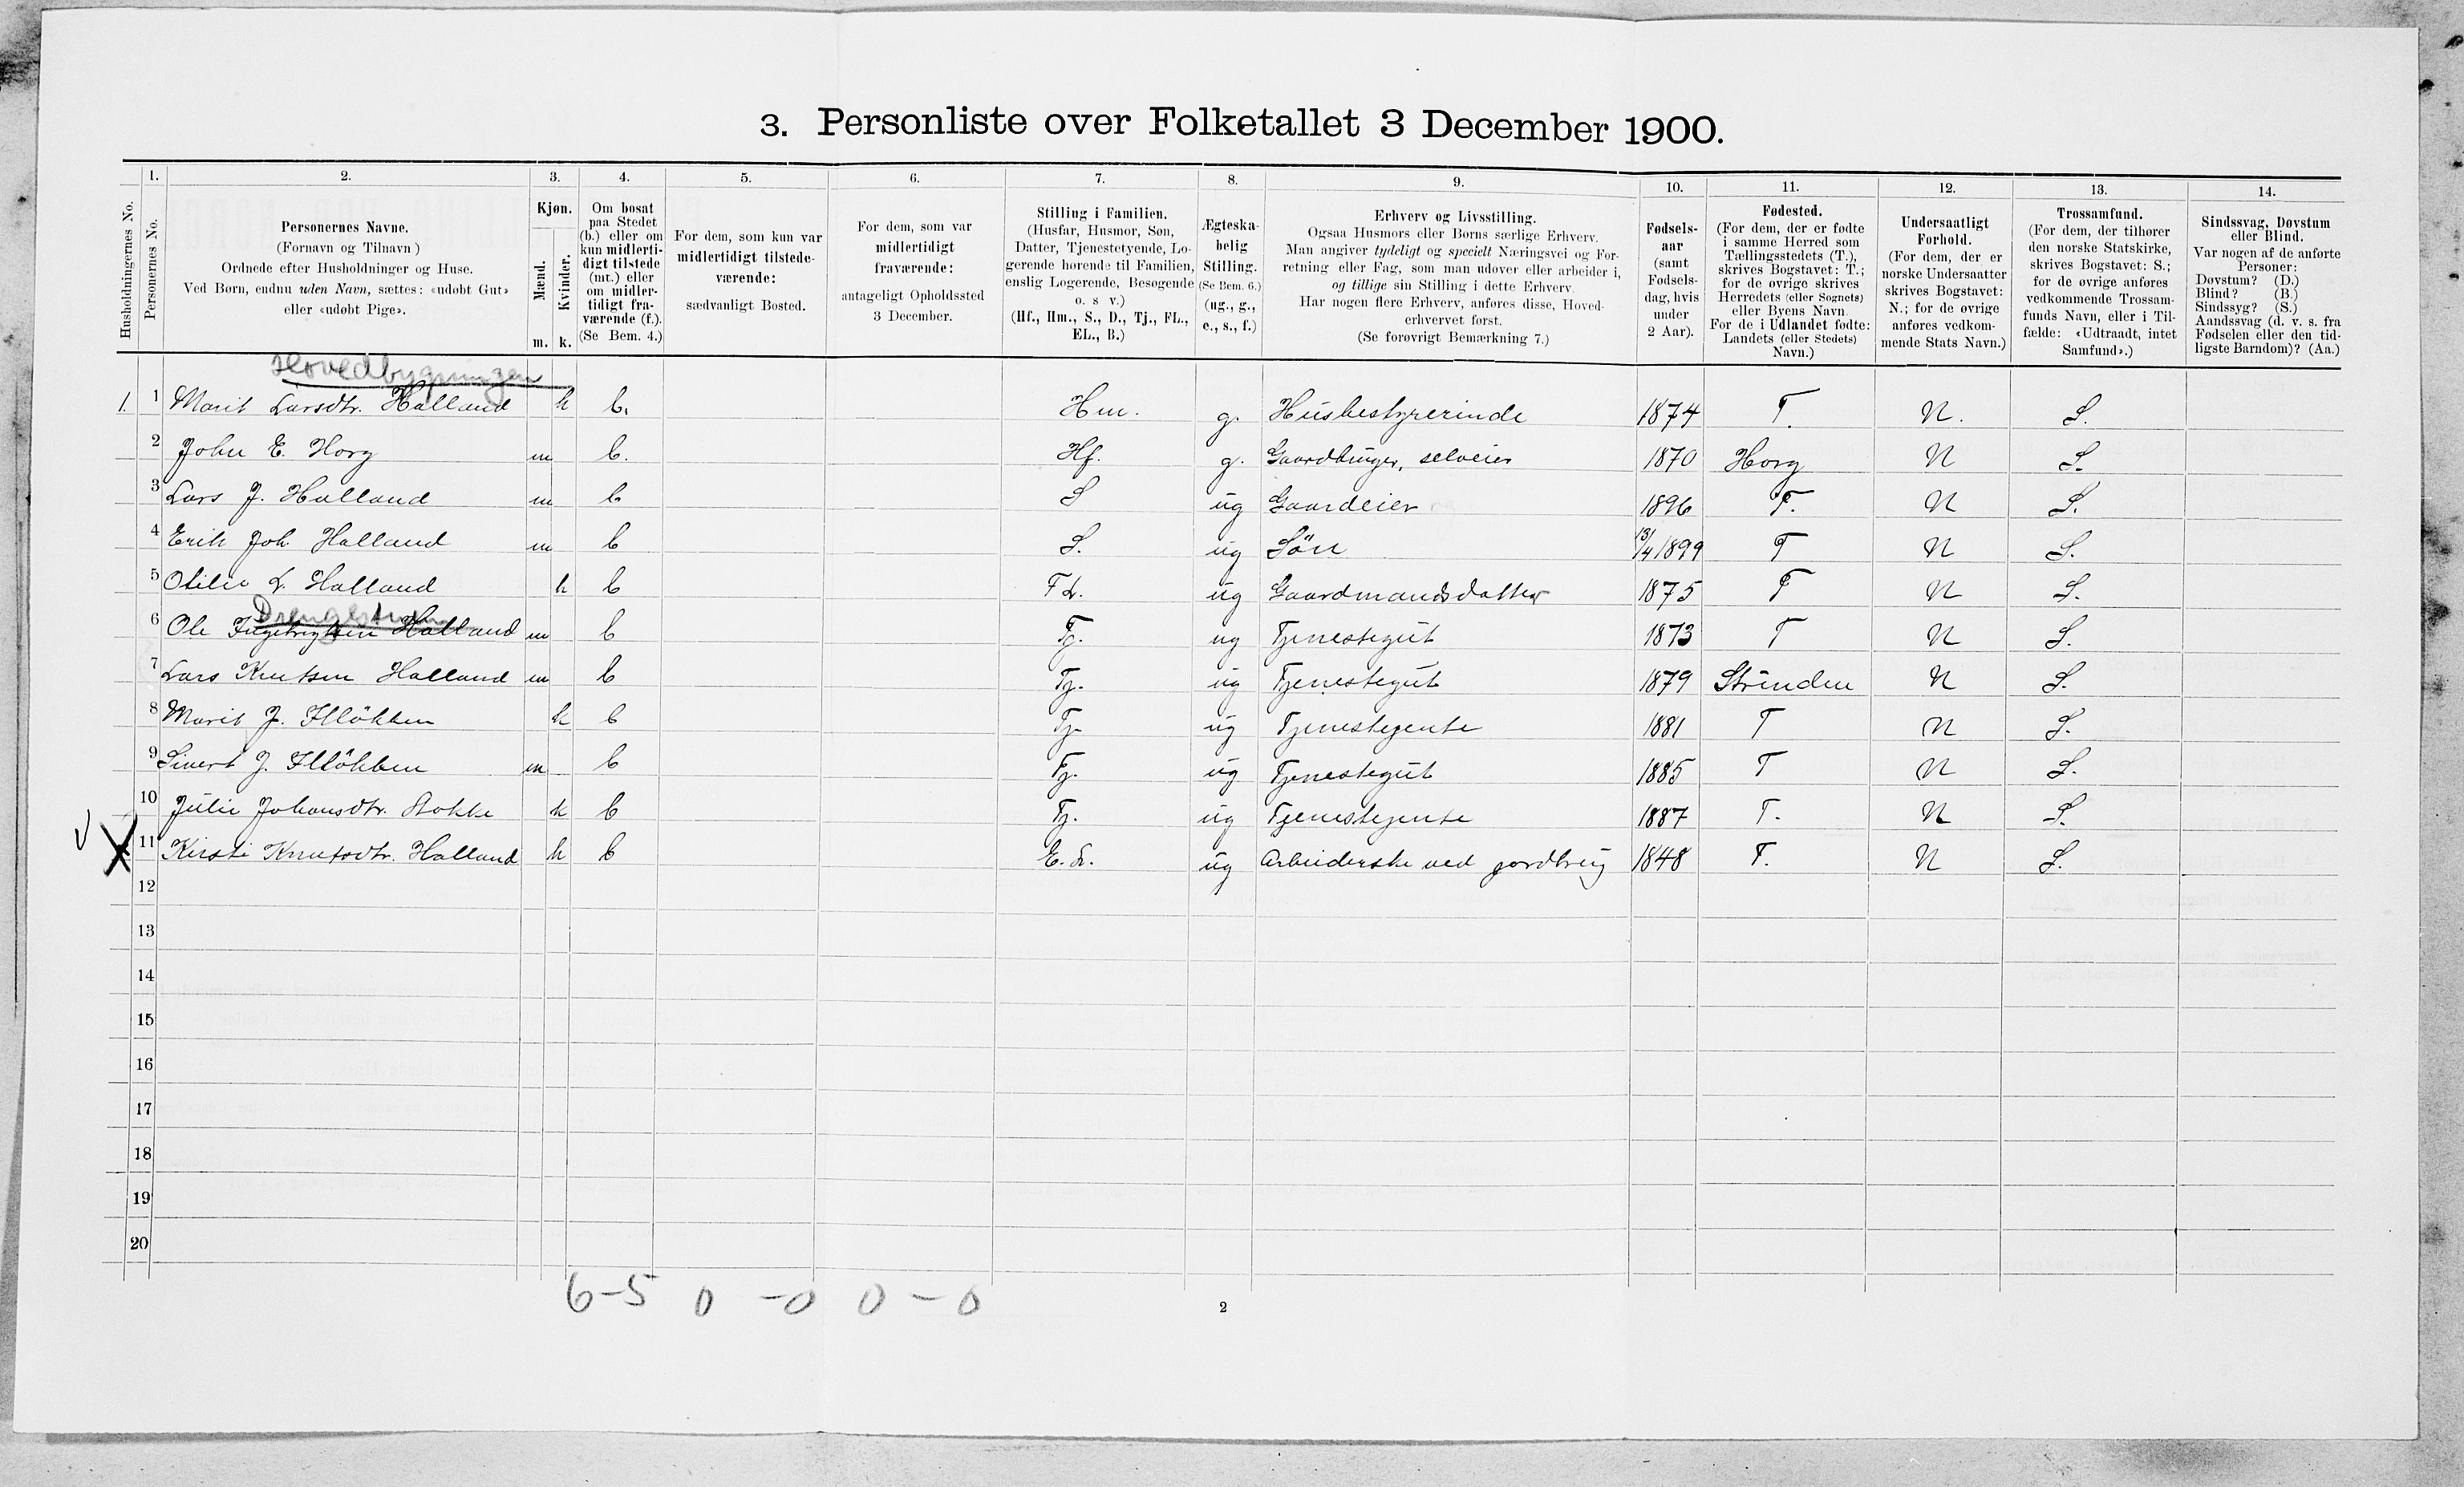 3. Personliste over Folketallet 3 December 1900.
Husholdningernes No.
1. Personernes No.
2. Personernes Navne.
(Fornavn og Tilnavn)
Ordnede efter Husholdninger og Huse.
Ved Børn, endnu uden Navn, sættes: «udøbt Gut»
eller «udøbt Pige».
3. Kjøn.
Mænd. m.
Kvinder. k.
4. Om bosat
paa Stedet
(b.) eller om
kun midlerti-
digt tilstede
(mt.) eller
om midler-
tidigt fra-
værende (f.).
(Se Bem. 4.)
5. For dem, som kun var
midlertidigt tilstede-
værende:
sædvanligt Bosted.
6. For dem, som var
midlertidigt
fraværende:
antageligt Opholdssted
3 December.
7. Stilling i Familien.
(Husfar, Husmor, Søn,
Datter, Tjenestetyende, Lo-
gerende hørende til Familien,
enslig Logerende, Besøgende
o. s v.)
(Hf., Hm., S., D., Tj., FL.,
EL., B.)
8. Ægteska-
belig
Stilling.
(Se Bem. 6.)
(ug., g.,
e., s., f.)
9. Erhverv og Livsstilling.
Ogsaa Husmors eller Børns særlige Erhverv.
Man angiver tydeligt og specielt Næringsvei og For-
retning eller Fag, som man udøver eller arbeider i,
og tillige sin Stilling i dette Erhverv.
Har nogen flere Erhverv, anføres disse, Hoved-
erhvervet først.
(Se forøvrigt Bemærkning 7.)
10. Fødsels-
aar
(samt
Fødsels-
dag, hvis
under
2 Aar).
11. Fødested.
(For dem, der er fødte
i samme Herred som
Tællingsstedets (T.),
skrives Bogstavet: T.;
for de øvrige skrives
Herredets (eller Sognets)
eller Byens Navn.
For de i Udlandet fødte:
Landets (eller Stedets)
Navn.)
12. Undersaatligt
Forhold.
(For dem, der er
norske Undersaatter
skrives Bogstavet:
N.; for de øvrige
anføres vedkom-
mende Stats Navn.)
13. Trossamfund.
(For dem, der tilhører
den norske Statskirke,
skrives Bogstavet: S.;
for de øvrige anføres
vedkommende Trossam-
funds Navn, eller i Til-
fælde: «Udtraadt, intet
Samfund».)
14. Sindssvag, Døvstum
eller Blind.
Var nogen af de anførte
Personer:
Døvstum? (D.)
Blind? (B.)
Sindssyg? (S.)
Aandssvag (d. v. s. fra
Fødselen eller den tid-
ligste Barndom)? (Aa.)
Hovedbygningen
1. 1 Marit Larsdtr. Halland k b. Hm. g. Husbestyrerinde 1874 T. N. S.
2 John E. Horg m b. Hf. g. Gaardbruger, selveier 1870 Horg N S.
3 Lars J. Halland m b S ug Gaardeier 1896 T. N S.
4 Erik Joh. Halland m b S. ug Sön 13/4 1899 T N S.
5 Otilie L. Halland k b FL. ug Gaardmandsdatter 1875 T N S.
Drengestuen
6 Ole Ingebrigtsen Halland m b Tj. ug Tjenestegut 1873 T N S.
7 Lars Knutsen Halland m b Tj. ug Tjenestegut 1879 Strinden N S.
8 Marit J. Illökken k b Tj. ug Tjenestejente 1881 T N S.
9 Sivert J. Illökken m b Tj. ug Tjenestegut 1885 T N S.
10 Julie Johansdtr. Stokke k b Tj. ug Tjenestejente 1887 T. N S.
11 Kirsti Knutsdtr. Halland k b E.L. ug Arbeiderske ved jordbrug 1848 T. N S.
12
13
14
15
16
17
18
19
20
6-5 0 - 0 0 - 0
2